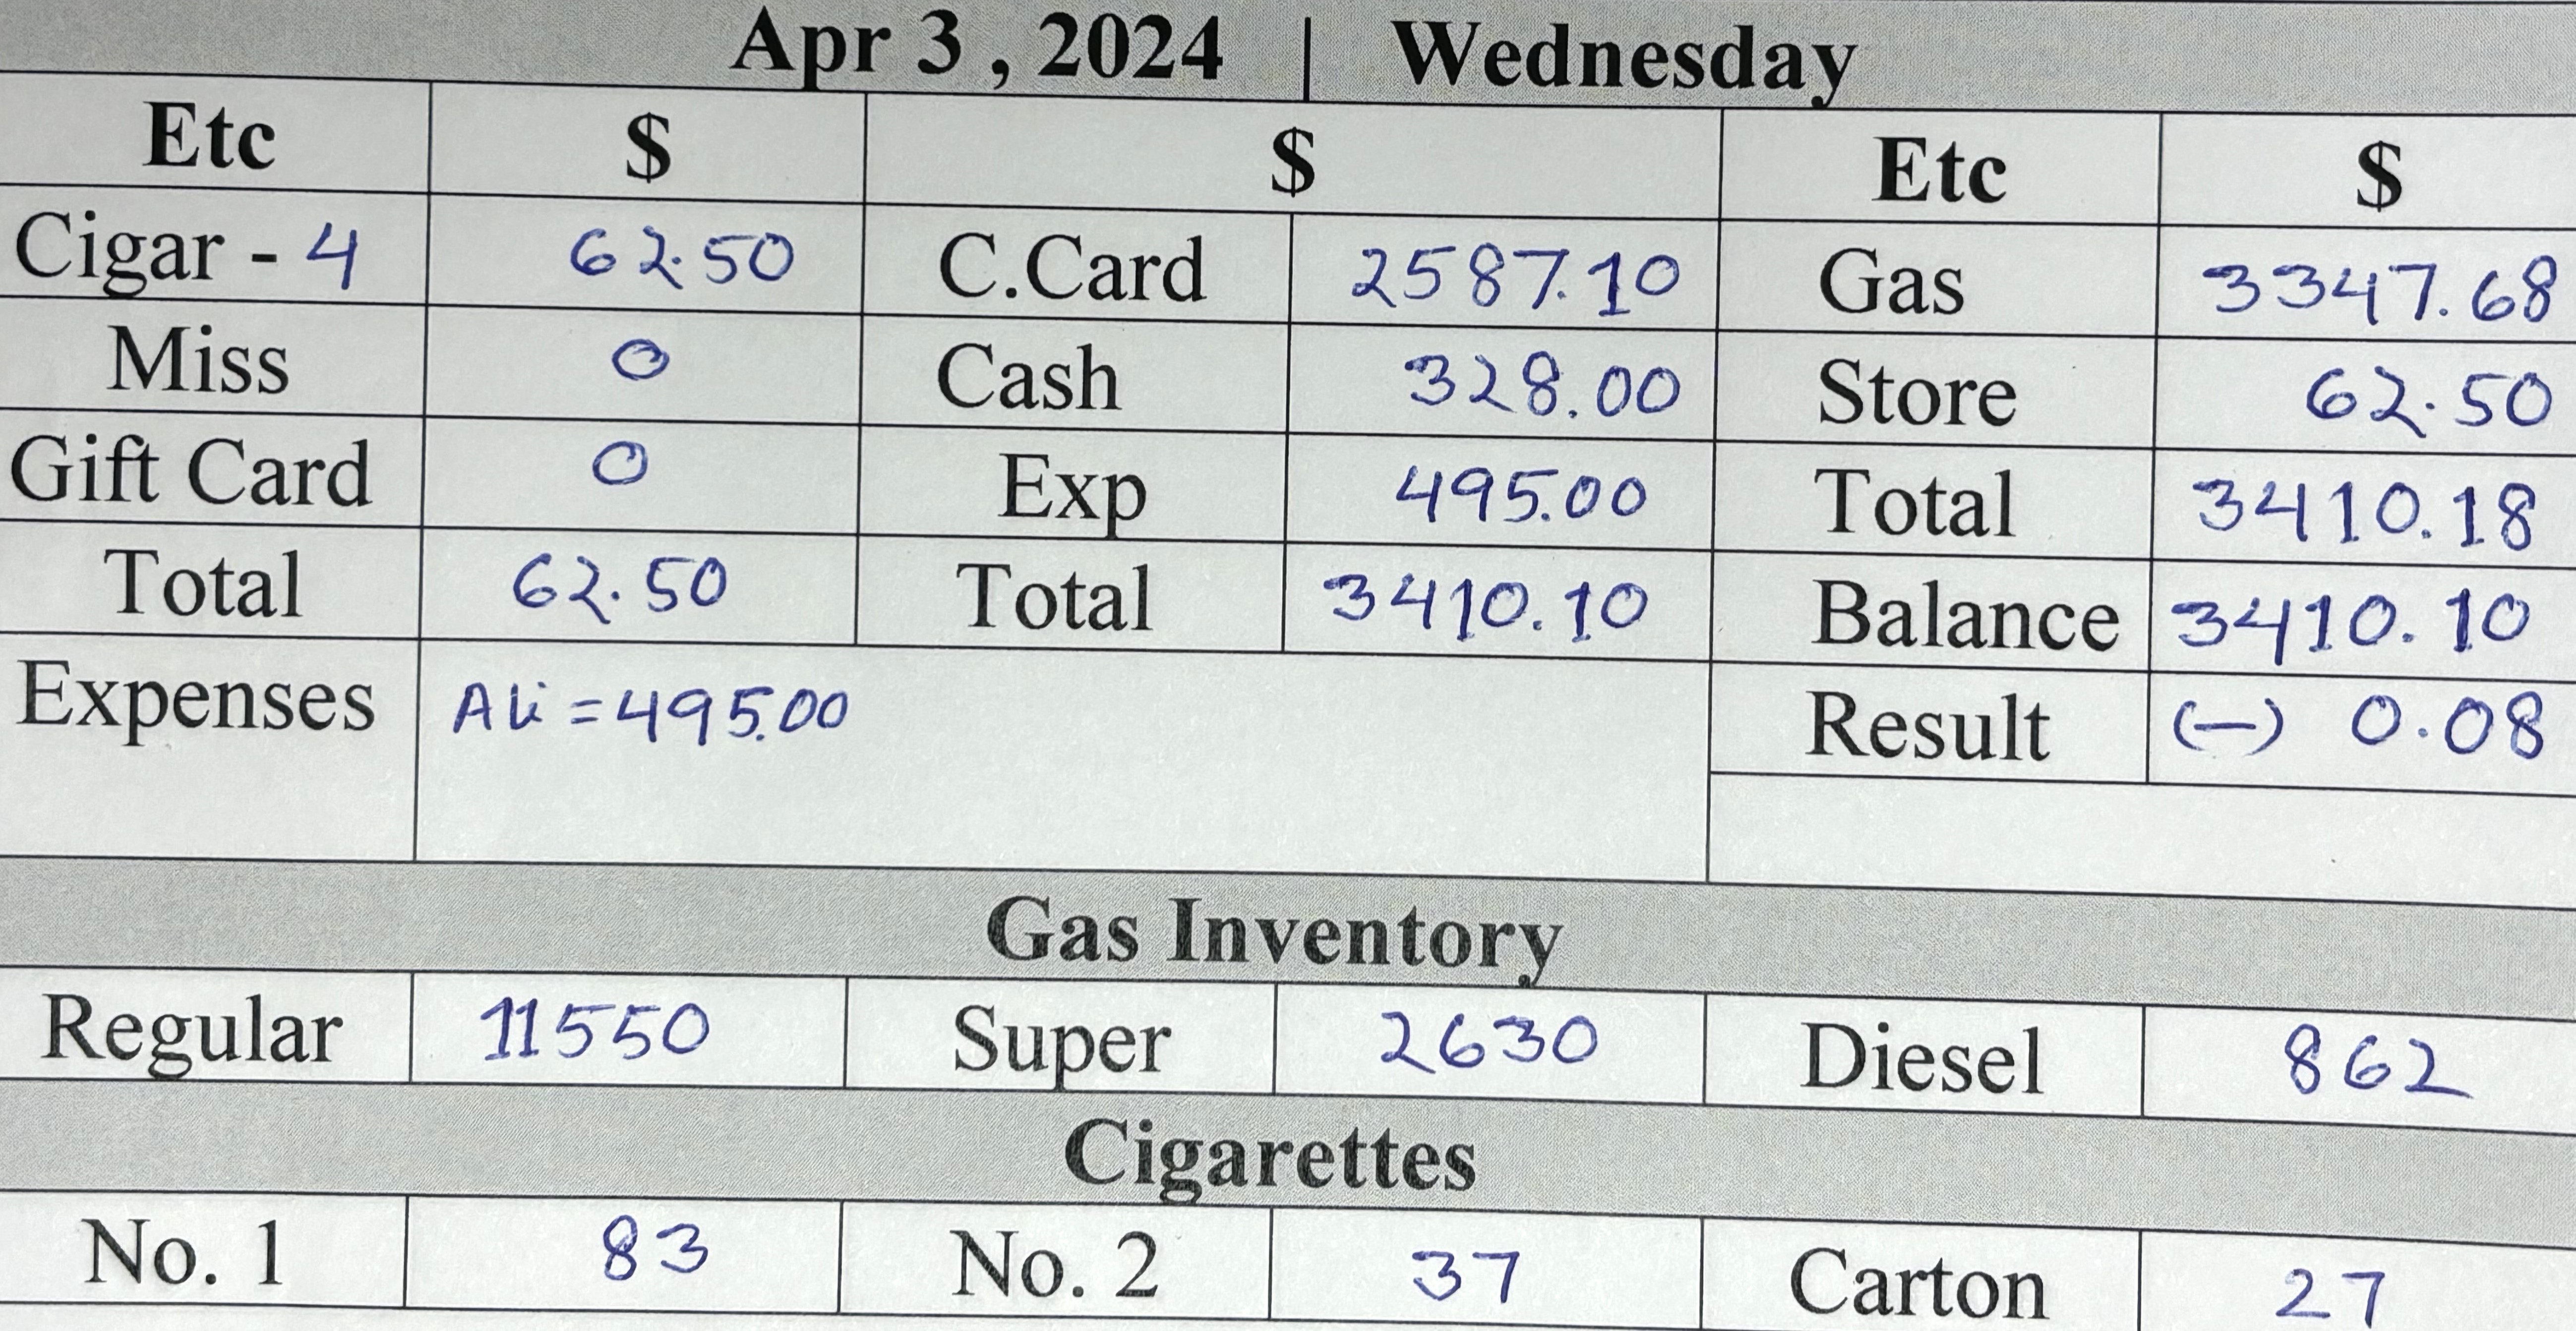 Apr 3 , 2024 | Wednesday
Etc $ $ Etc $
Cigar - 4 62.50 C.Card 2587.10 Gas 3347.68
Miss 0 Cash 328.00 Store 62.50
Gift Card 0 Exp 495.00 Total 3410.18
Total 62.50 Total 3410.10 Balance 3410.10
Expenses Ali = 495.00 Result (-) 0.08
Gas Inventory
Regular 11550 Super 2630 Diesel 862
Cigarettes
No. 1 83 No. 2 37 Carton 27